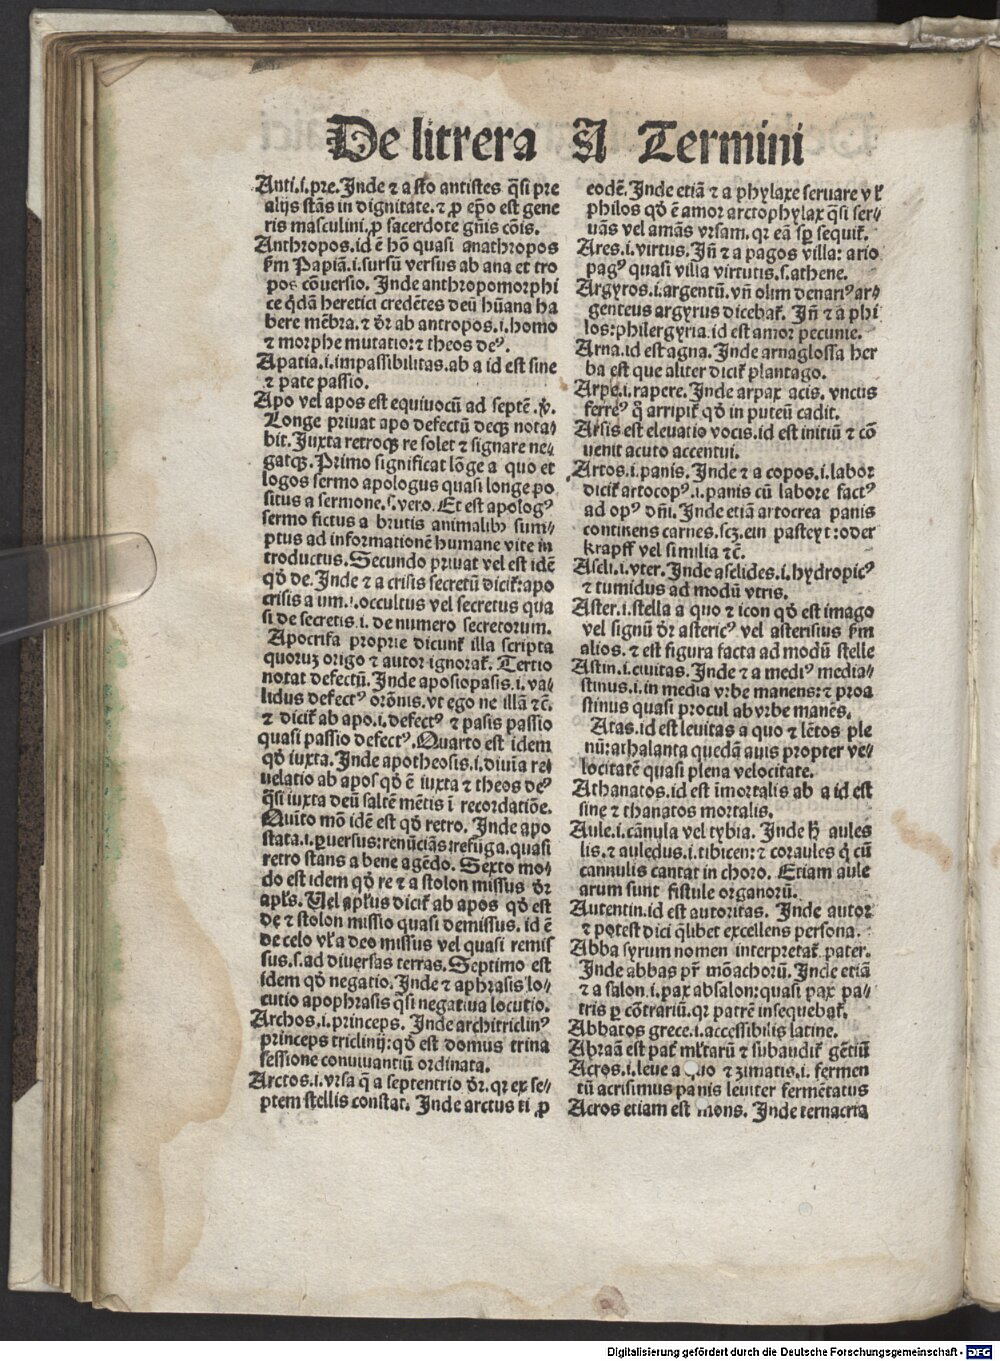 De litrera A Termini
Anti.i.pre.Inde ⁊ a sto antistes q̄si pre
alijs stās in dignitate.⁊ ꝓ epō est gene
ris masculini.ꝓ sacerdote gn̄is cōis.
Anthropos.id ē hō quasi anathropos
km̄ Papiā.i.sursū versus ab ana et tro
pos cōuersio. Inde anthropomorphi
ce q̄dā heretici credētes deū hūana ha
bere mēbra.⁊ dr̄ ab antropos.i.homo
⁊ morphe mutatio:⁊ theos deꝰ.
Apatia.i.impassibilitas.ab a id est sine
⁊ pate passio.
Apo vel apos est equiuocū ad septē.ꝟ.
Longe priuat apo defectū decꝫ nota⸗
bit.Iuxta retroqꝫ re solet ⁊ signare ne⸗
gatqꝫ.Primo significat lōge a quo et
logos sermo apologus quasi longe po
situs a sermone.s.vero. Et est apologꝰ
sermo fictus a brutis animalibꝫ sum⸗
ptus ad informationē humane vite in
troductus.Secundo priuat vel est idē
qd̄ de.Inde ⁊ a crisis secretū dicit̄:apo
crisis a um.i.occultus vel secretus qua
si de secretis.i.de numero secretorum.
Apocrifa proprie dicunt̄ illa scripta
quoruꝫ origo ⁊ autor ignorat̄. Tertio
notat defectū.Inde aposiopasis.i.va⸗
lidus defectꝰ orōnis.vt ego ne illā ⁊c̄.
⁊ dicit̄ ab apo.i.defectꝰ ⁊ pasis passio
quasi passio defectꝰ.Quarto est idem
qd̄ iuxta. Inde apotheosis.i.diuīa re⸗
uelatio ab apos qd̄ ē iuxta ⁊ theos deꝰ
q̄si iuxta deū saltē mētis ī recordatiōe.
Quīto mō idē est qd̄ retro. Inde apo
stata.i.ꝑuersus:renūciās:refuga.quasi
retro stans a bene agēdo. Sexto mo⸗
do est idem qd̄ re ⁊ a stolon missus dr̄
apl̄s.Uel apl̄us dicit̄ ab apos qd̄ est
de ⁊ stolon missio quasi demissus.id ē
de celo vl̄ a deo missus vel quasi remis
sus.s.ad diuersas terras.Septimo est
idem qd̄ negatio.Inde ⁊ aphrasis lo⸗
cutio apophrasis q̄si negatiua locutio.
Archos.i.princeps. Inde architriclinꝰ
princeps triclinij:qd̄ est domus trina
sessione conuiuantiū ordinata.
Arctos.i.vrsa q̄ a septentrio dr̄.qꝛ ex se⸗
ptem stellis constat. Inde arctus ti ꝓ
eodē.Inde etiā ⁊ a phylaxe seruare vl̄
philos qd̄ ē amor arctophylax q̄si ser⸗
uās vel amās vrsam.qꝛ eā sp̄ sequit̄.
Ares.i.virtus. In̄ ⁊ a pagos villa: ario
pagꝰ quasi villa virtutis.s.athene.
Argyros.i.argentū.vn̄ olim denariꝰ ar⸗
genteus argyrus dicebat̄. In̄ ⁊ a phi
los:philergyria.id est amor pecunie.
Arna.id est agna.Inde arnaglossa her
ba est que aliter dicit̄ plantago.
Arpe.i.rapere. Inde arpax acis. vncus
ferreꝰ q̄ arripit̄ qd̄ in puteū cadit.
Arsis est eleuatio vocis.id est initiū ⁊ cō
uenit acuto accentui.
Artos.i.panis. Inde ⁊ a copos.i.labor
dicit̄ artocopꝰ.i.panis cū labore factꝰ
ad opꝰ dn̄i. Inde etiā artocrea panis
continens carnes.scꝫ.ein pasteyt:oder
krapff vel similia ⁊c̄.
Aseli.i.vter. Inde aselides.i.hydropicꝰ
⁊ tumidus ad modū vtris.
Aster.i.stella a quo ⁊ icon qd̄ est imago
vel signū dr̄ astericꝰ vel asterisius km̄
alios.⁊ est figura facta ad modū stelle
Astin.i.ciuitas. Inde ⁊ a mediꝰ media⸗
stinus.i.in media vrbe manens:⁊ proa
stinus quasi procul ab vrbe manēs.
Atas.id est leuitas a quo ⁊ lētos ple
nū:athalanta quedā auis propter ve⸗
locitatē quasi plena velocitate.
Athanatos.id est īmortalis ab a id est
sine ⁊ thanatos mortalis.
Aule.i.cānula vel tybia. Inde h̄ aules
lis.⁊ auledus.i.tibicen:⁊ coraules q̇ cū
cannulis cantat in choro. Etiam aule
arum sunt fistule organorū.
Autentin.id est autoritas. Inde autor
⁊ potest dici q̄libet excellens persona.
Abba syrum nomen interpretat̄ pater.
Inde abbas pr̄ mōachorū.Inde etiā
⁊ a salon.i.pax absalon:quasi pax pa⸗
tris ꝑ cōtrariū.qꝛ patrē insequebat̄.
Abbatos grece.i.accessibilis latine.
Abraā est pat̄ ml̄tarū ⁊ subaudit̄ gētiū
Acros.i.leue a quo ⁊ zimatis.i.fermen
tū acrisimus panis leuiter fermētatus
Acros etiam est mons. Inde ternacria
Digitalisierung gefördert durch die Deutsche Forschungsgemeinschaft - DFG